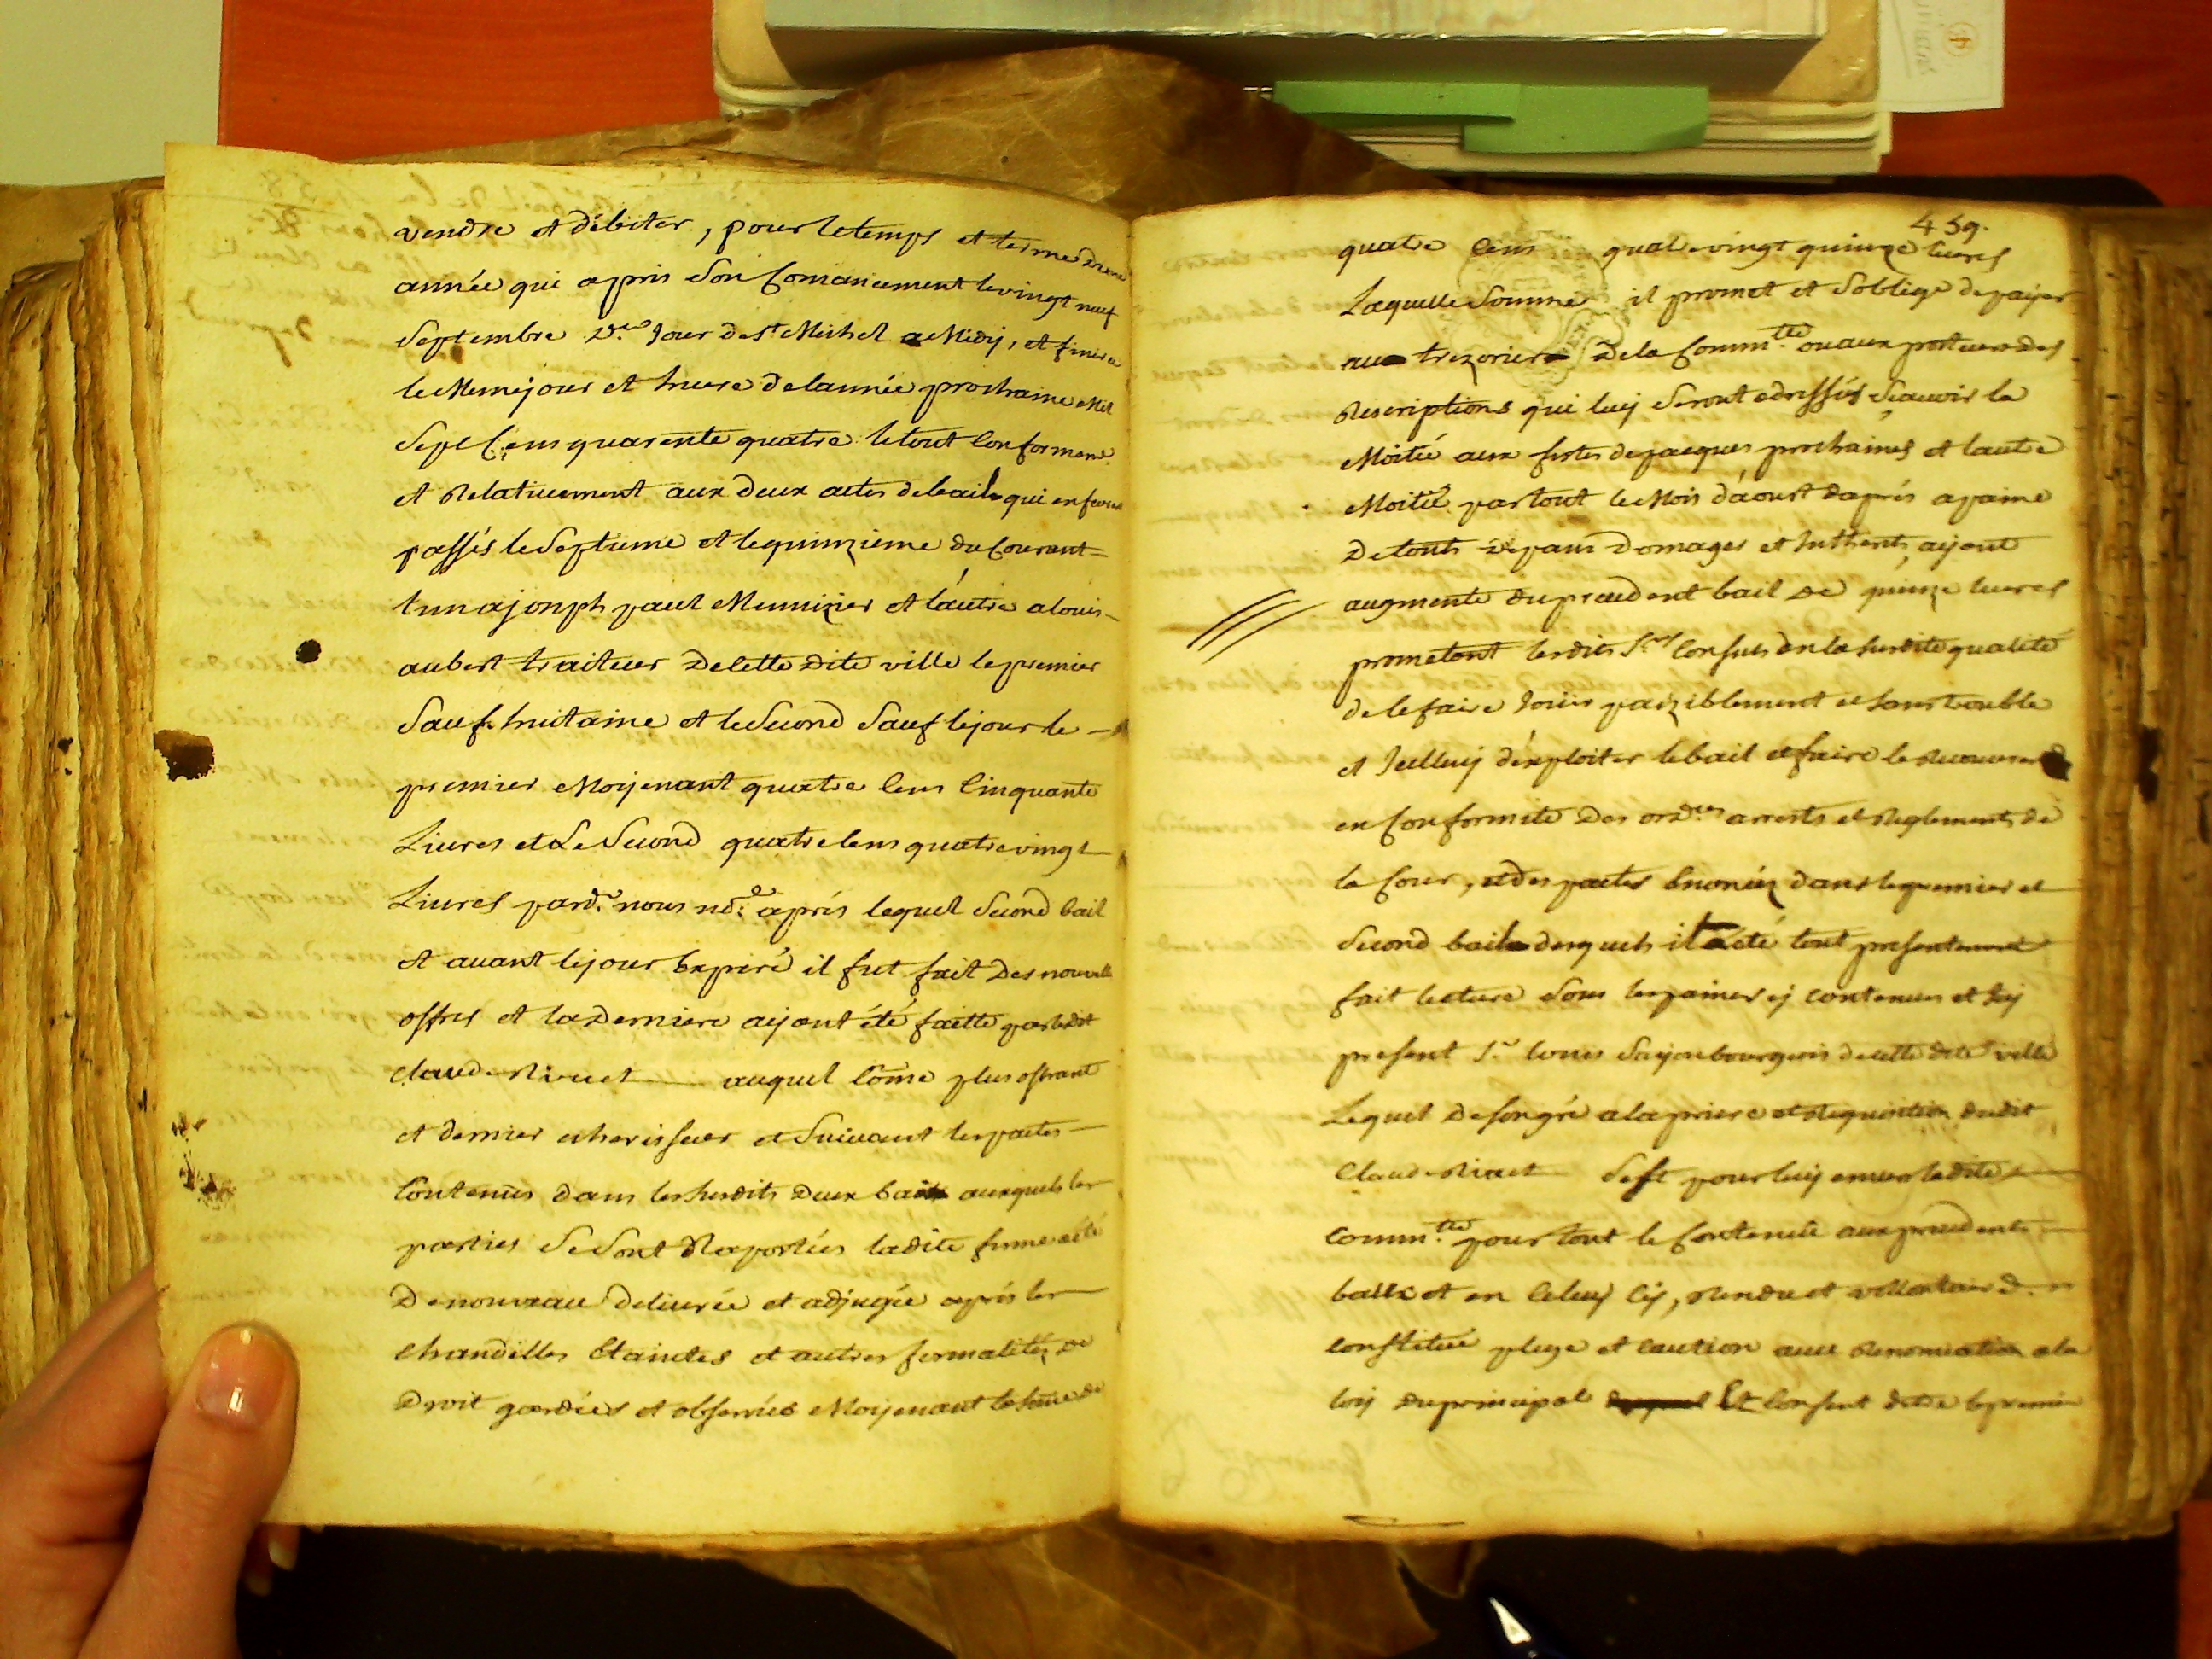 vendre et débiter, pour le temps et terme d'une
année qui a pris son Comancement le vingt neuf
Septembre d.er Jour de s.t Michel a Midy, et finira
le Meme jour et heure de lannée prochaine Mil
Sept Cens quarente quatre le tout Conformem.t
et Relativement aux deux actes de bail qui en furent
passés le Septieme et le quinzieme du Courant
lun a joseph paul Meunizier et lautre a louis
aubert traiteur de cette dite ville le premier
Sauf huitaine et le Second Sauf le jour le
premier Moyenant quatre Cens Cinquante
Livres et Le Second quatre Cens quatre vingt
Livres pard.t nous no.re après lequel Second bail
et avant le jour Expiré il fut fait des nouvelles
offres et la derniere ayant été faitte par ledit
Claude Rivuet auquel Come plus offrant
et dernier encherisseur et Suivant les pactes
Contenus dans les susdits deux baux auxquels les
parties Se Sont Raportées ladite ferme a été
de nouveau delivrée et adjugée après les
chandelles Etaintes et autres formalités de
Droit gardées et observées Moyenant la some de
439.
quatre Cens quatre vingt quinze livres
Laquelle Somme il promet et S'oblige de payer
au trezorier de la Comm.tté ou aux porteurs des
Rescriptions qui luy Seront adressées Scavoir la
Moitié aux fetes de pacques prochaines et lautre
Moitié par tout le Mois d'aoust d'après a paine
de touts depans domages et Intherets, ayant
augmenté du precedent bail de quinze livres
prometant lesdits S.rs Consuls en la susdite qualité
de le faire Jouir paiziblement et sans trouble
et Jcelluy d'exploiter le bail et faire le
en Conformité des ord.ces arrests et Reglements de
la Cour, et des pactes Enoncez dans le premier et
Second bail desquels il a été tout presentement
fait lecture Sous les paines y contenues et Icy
present S.r louis bourgeois de cette dite ville
Lequel de son gré a la priere et Requisition dudit
Claude Rivuet S'est pour luy envers ladite
Comm.tté pour tout le Contenu aux precedents
baux et en Celuy Cy, Rendu et
constitué plege et caution avec Renonciation a la
loy du principal Et Consent